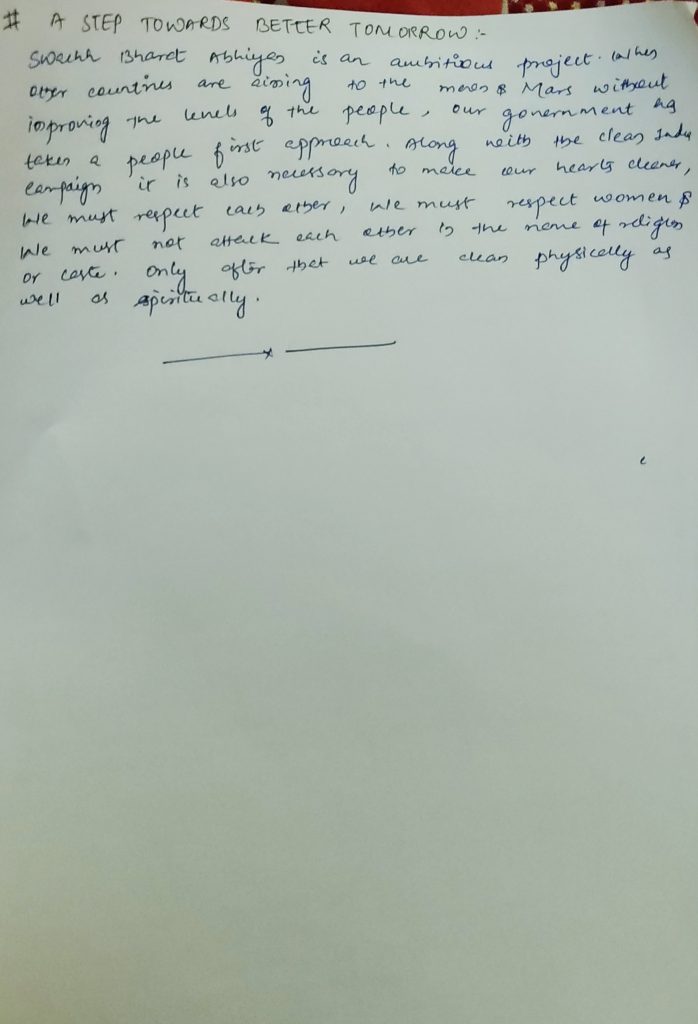 # A STEP TOWARDS BETTER TOMORROW :-
Swachh Bharat Abhiyan is an ambitious project. When
other countries are aiming to the moon & Mars without
improving the levels of the people, our government has
taken a people first approach. Along with the clean India
campaign it is also necessary to make our hearts cleaner,
We must respect each other, We must respect women &
We must not attack each other in the name of religion
or caste. Only after that we are clean physically as
well as spiritually.